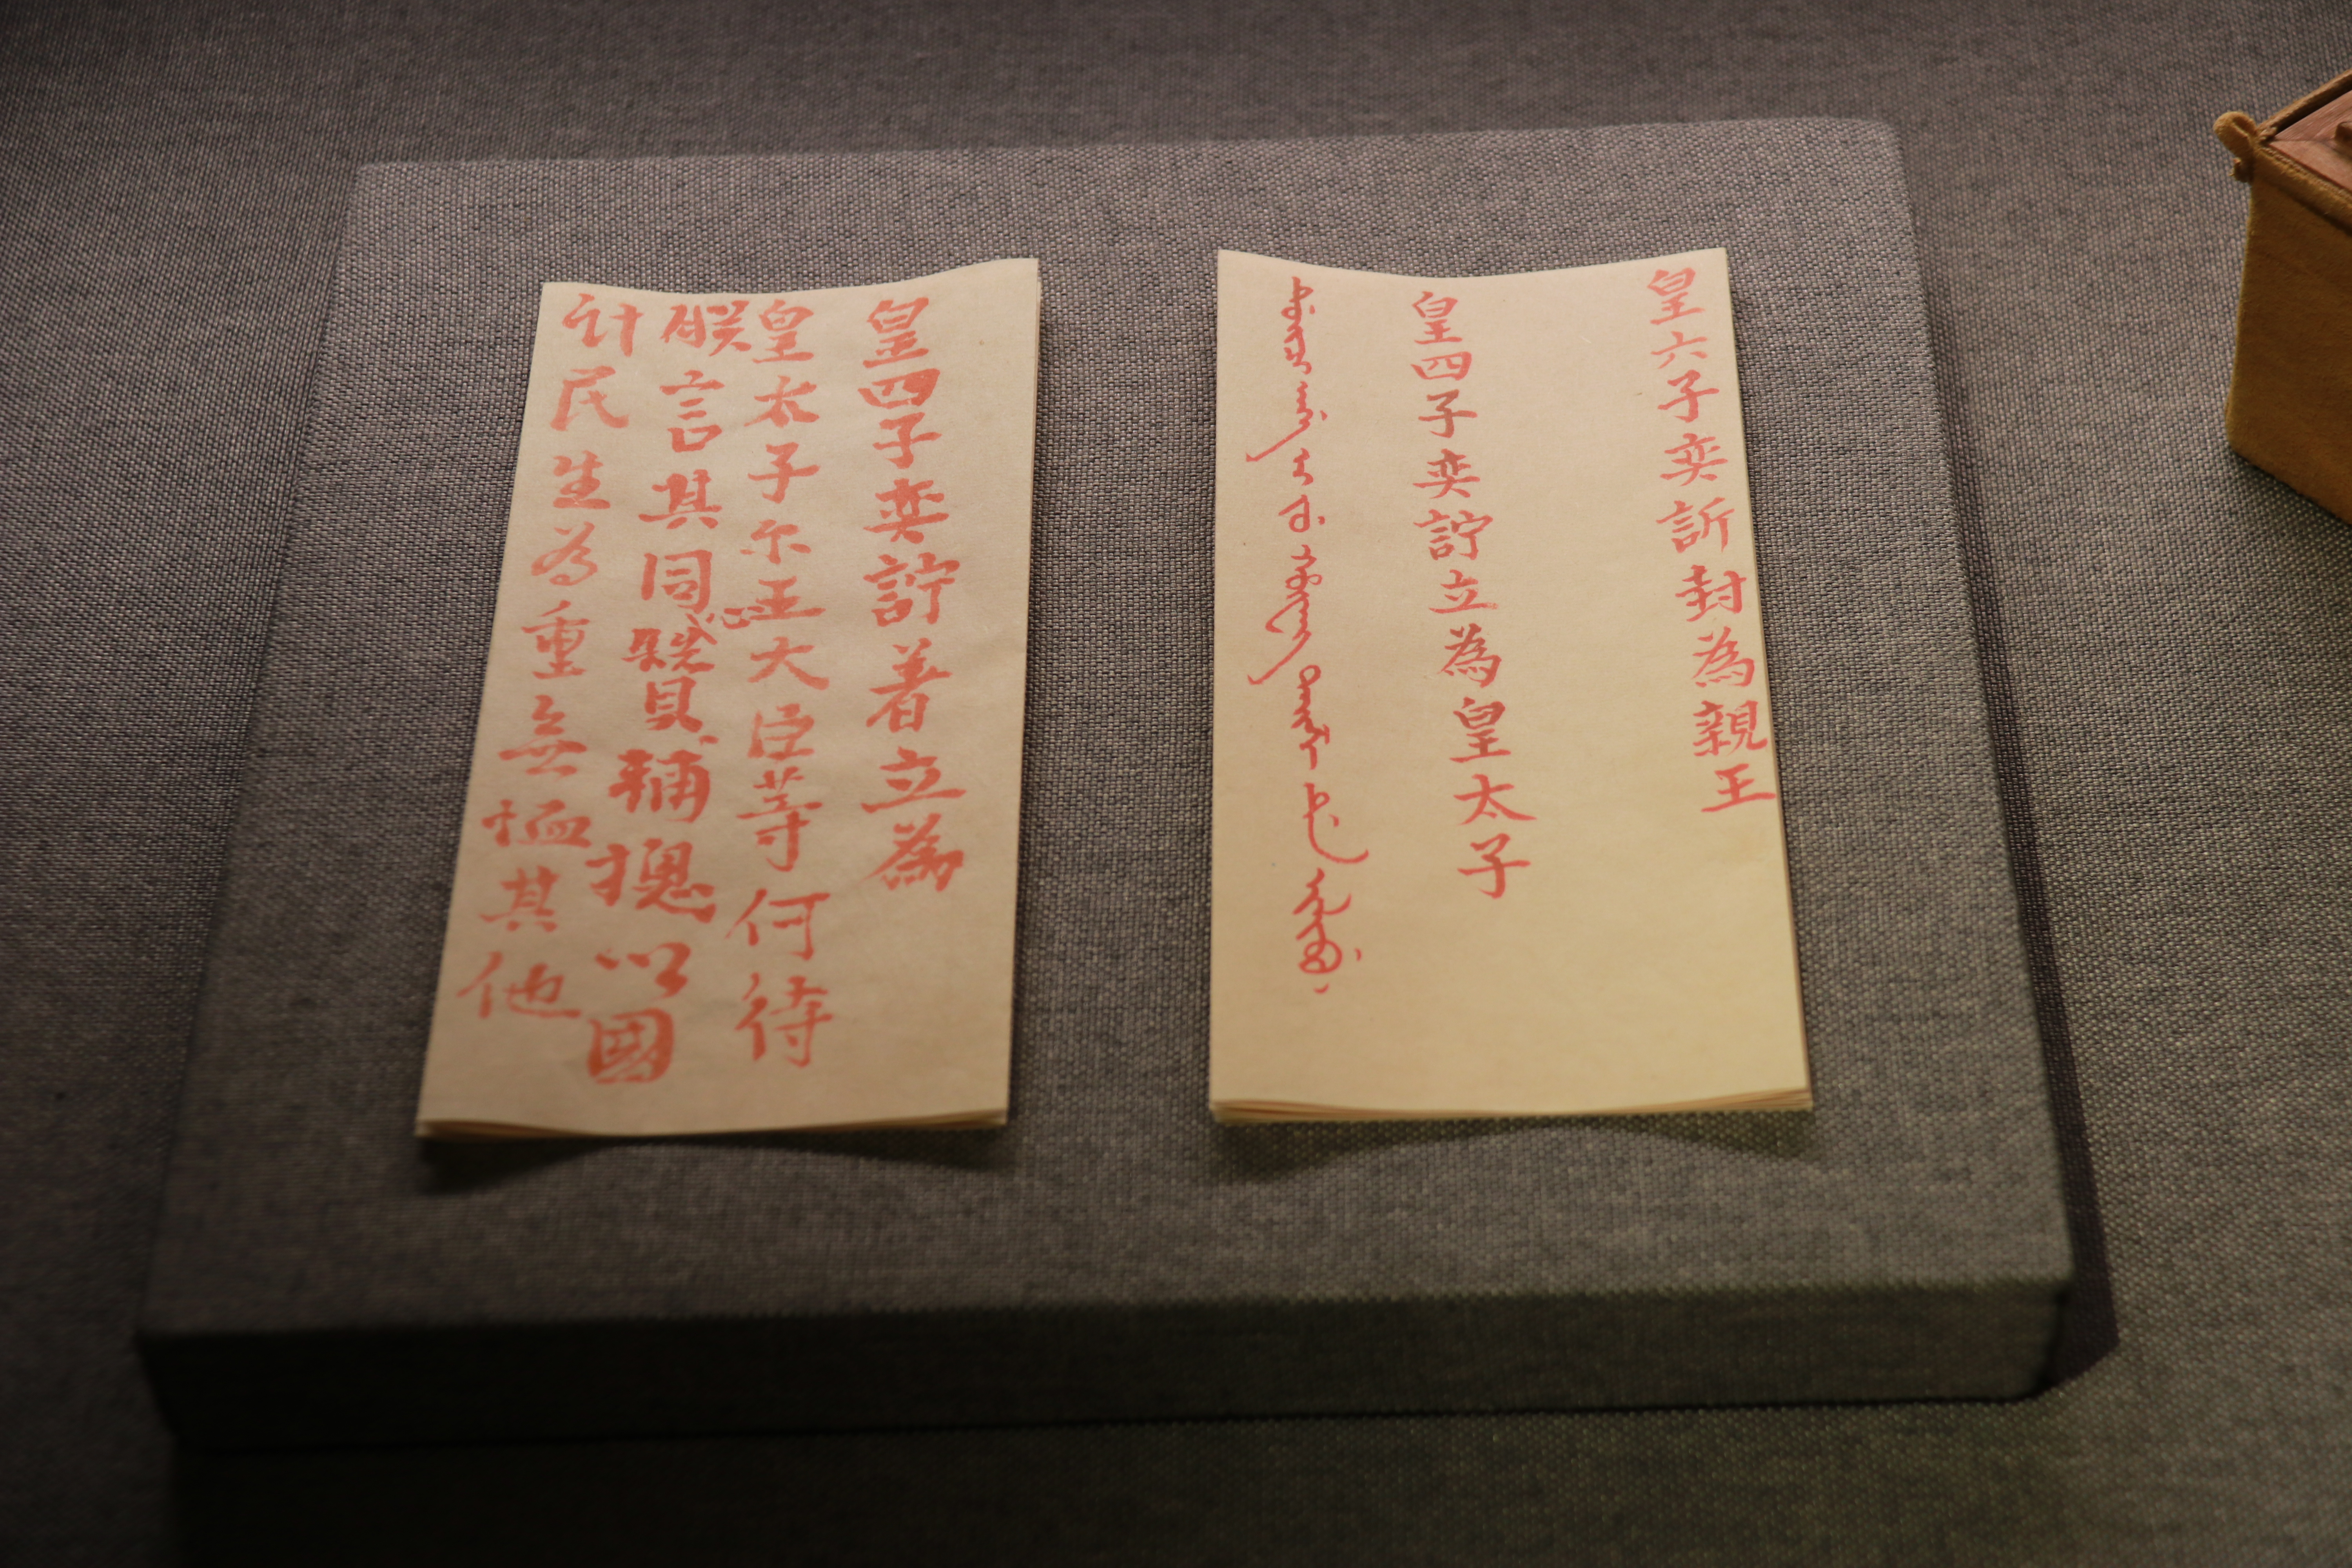 皇六子奕訢封為親王
皇四子奕詝立為皇太子
皇四子奕詝著立為
皇太子尔王大臣等何待
朕言其同心贊輔摠以國
计民生為重無恤其他